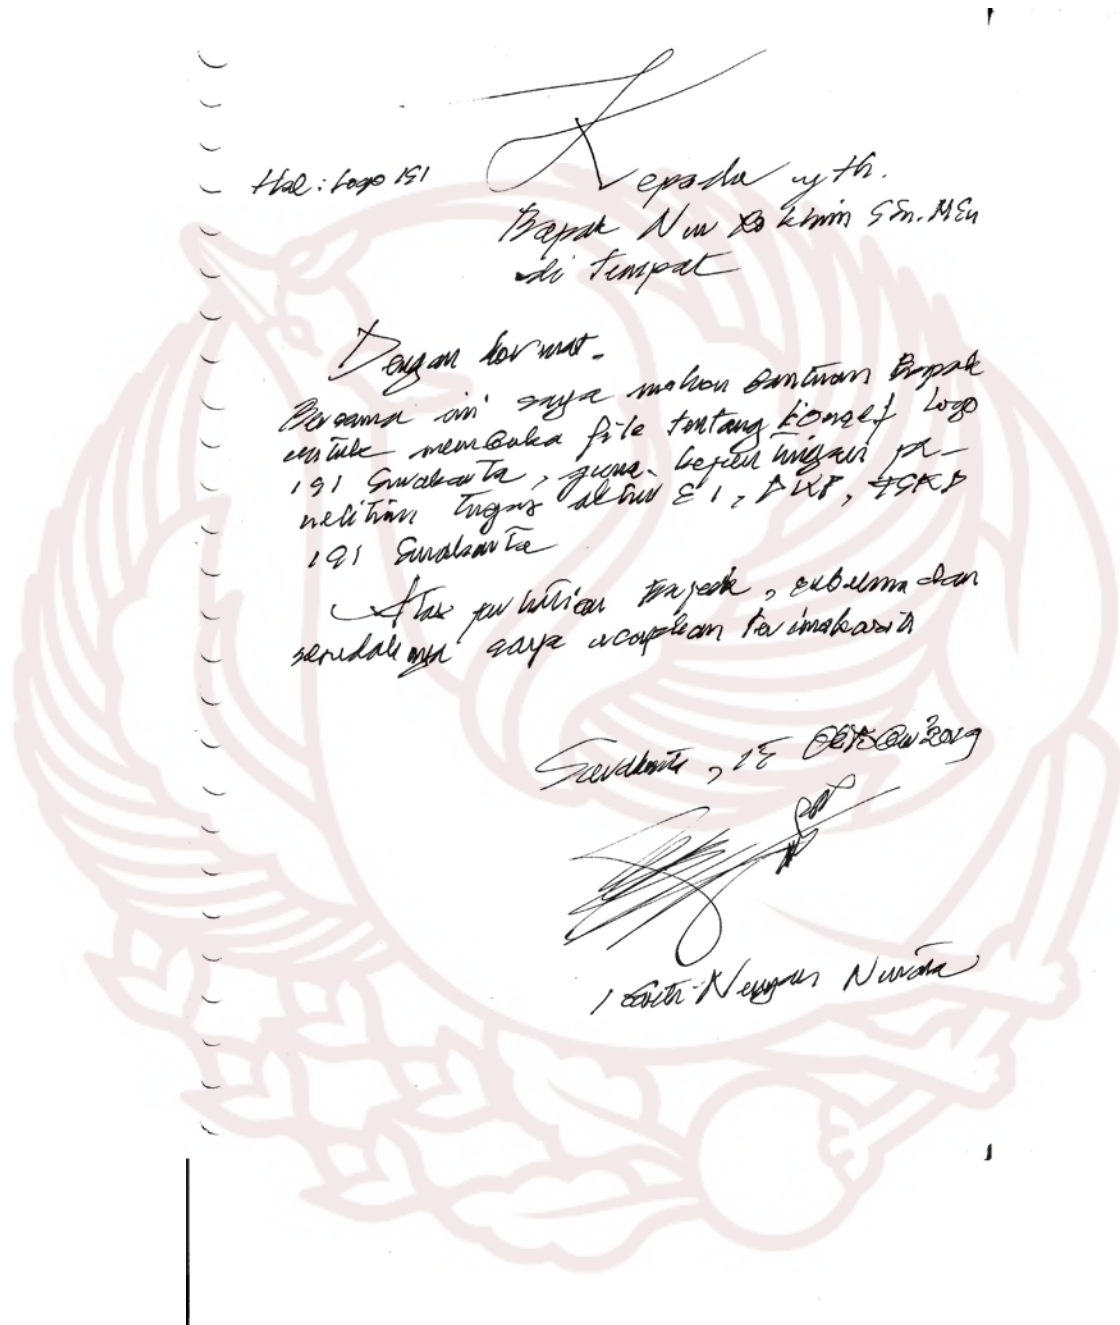 Hal : Logo ISI
Kepada yth.
Bapak Nur Rokhim S.Sn. M.Sn
di tempat
Dengan hormat.
Bersama ini saya mohon bantuan Bapak
untuk membuka file tentang konsep Logo
ISI Surakarta, guna kepentingan pe-
nelitian Tugas akhir S1, DKV, FSRD
ISI Surakarta
Atas perhatian Bapak, sebelum dan
sesudahnya saya ucapkan terimakasih
Surakarta, Oktober 2019
Nengah Nurata